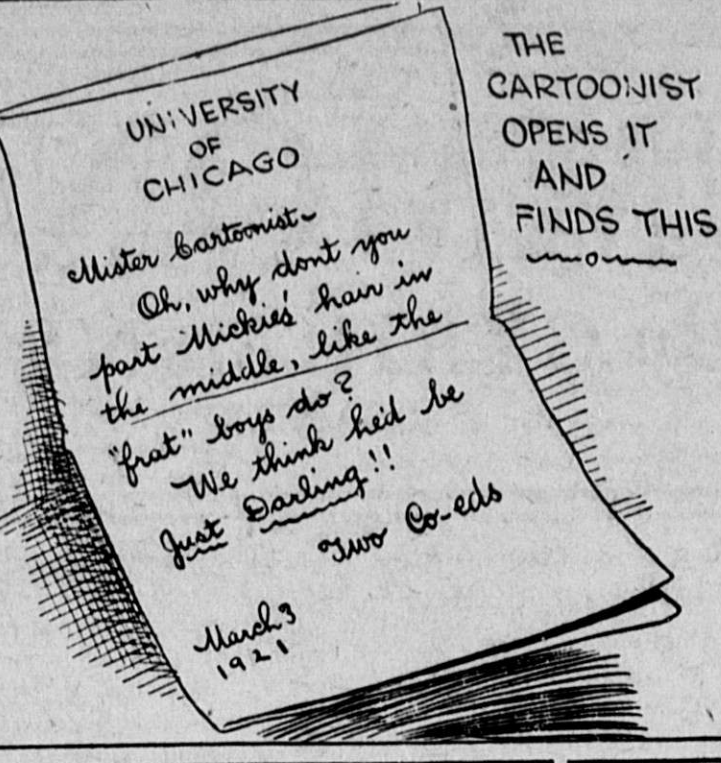 UNIVERSITY
OF
CHICAGO
Mister Cartoonist~
Oh, why dont you
part Mickie's hair in
the middle, like the
"frat" boys do?
We think he'd be
Just Darling!!
Two Co-eds
March 3
1921
THE
CARTOONIST
OPENS IT
AND
FINDS THIS